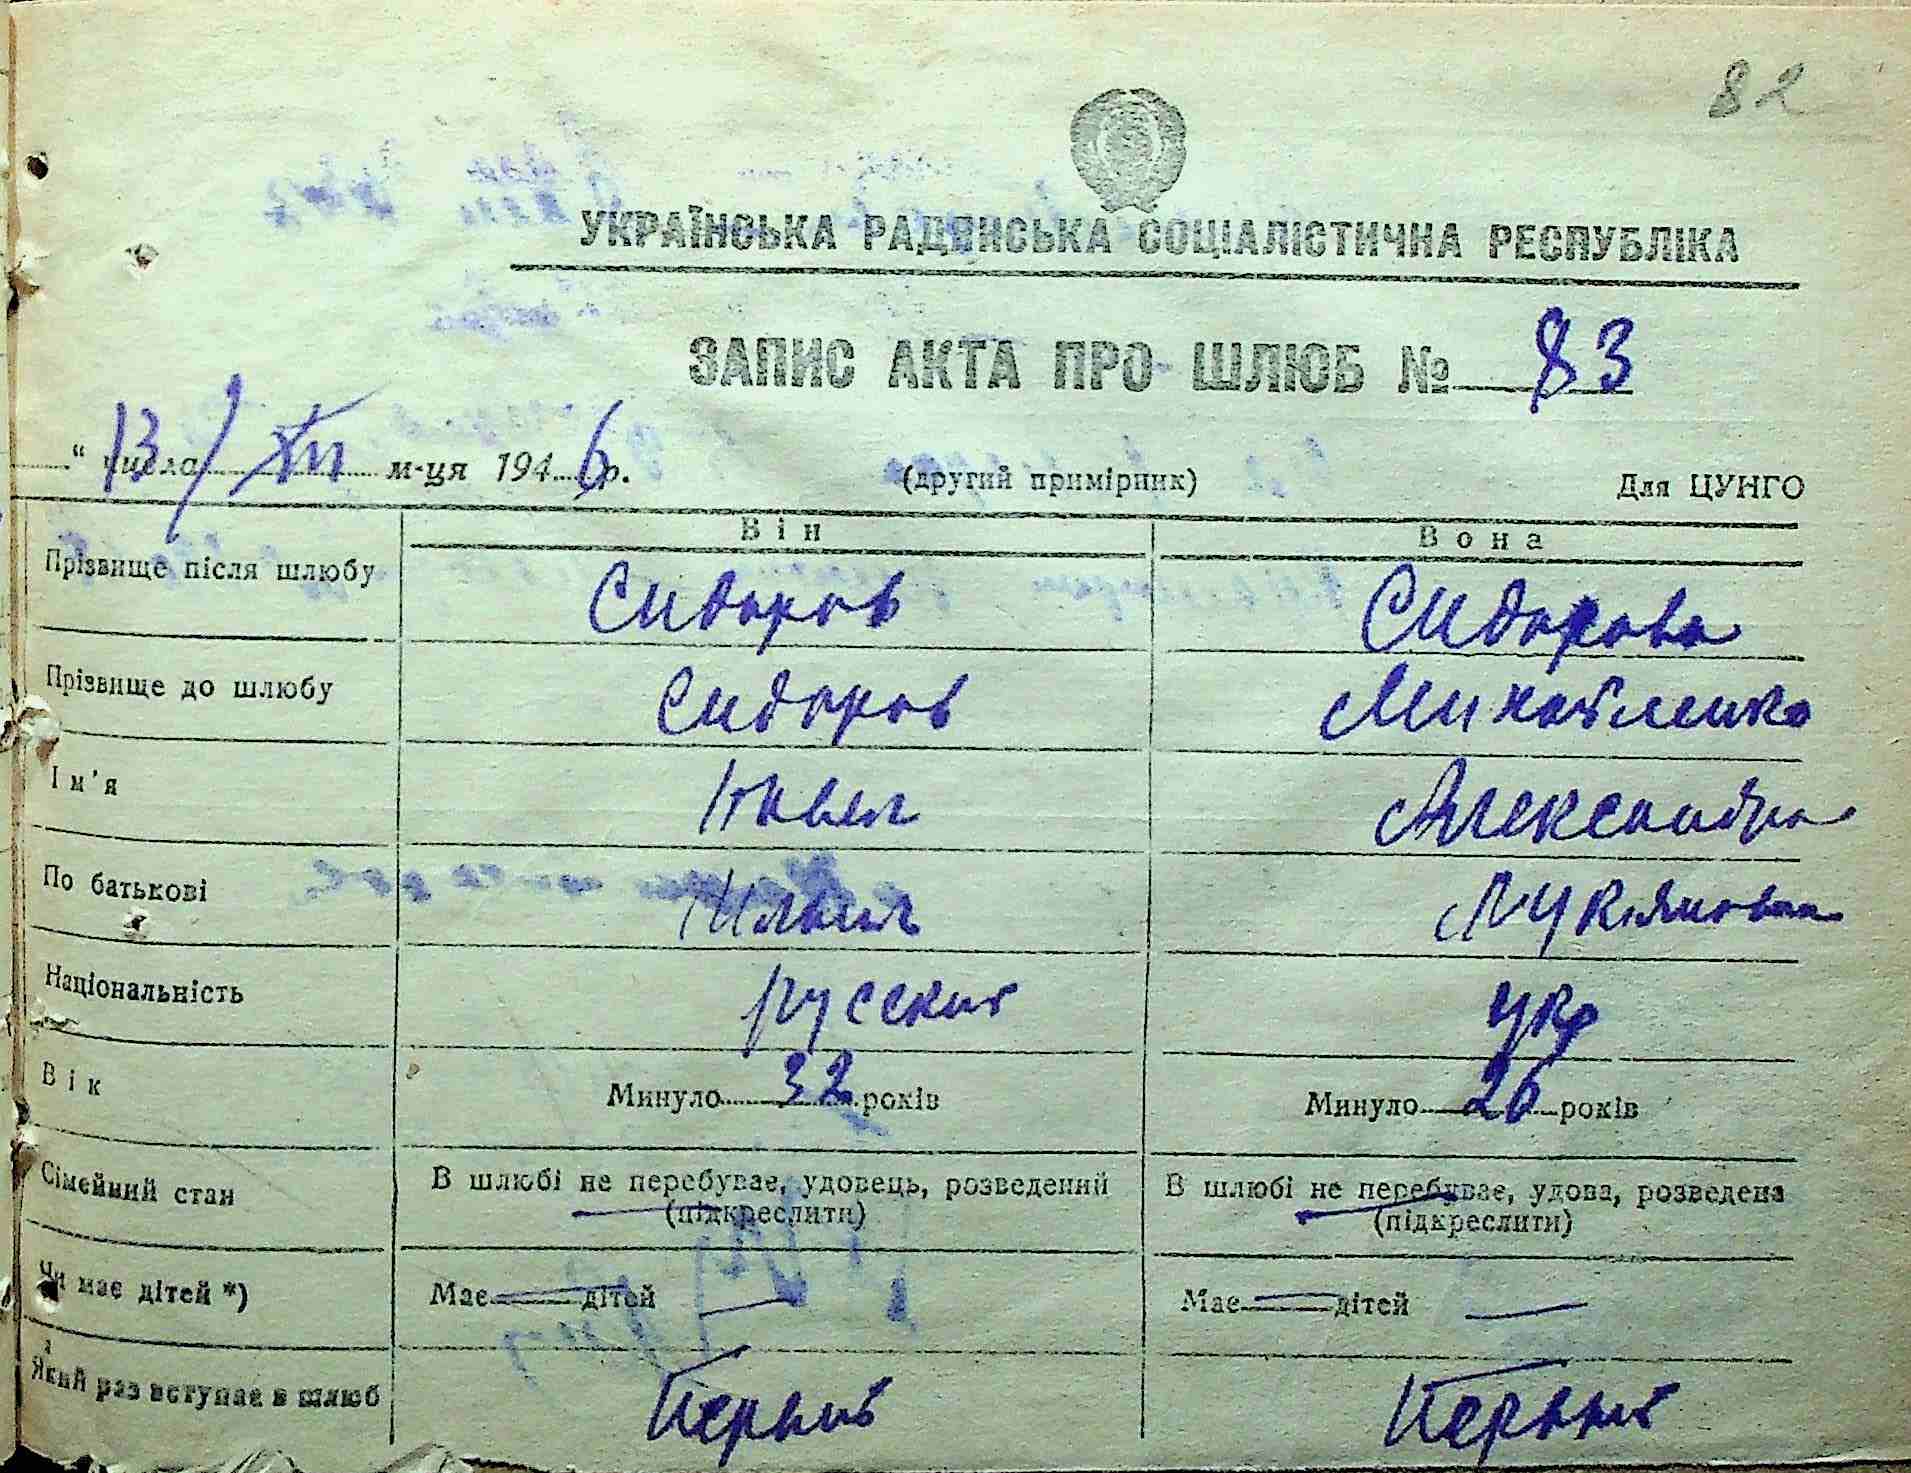 82
УКРАЇНСЬКА РАДЯНСЬКА СОЦІАЛІСТИЧНА РЕСПУБЛІКА
ЗАПИС АКТА ПРО ШЛЮБ № 83
" 13 числа XII м-ця 1946 р. (другий примірник) Для ЦУНГО
Він Вона
Прізвище після шлюбу Сидоров Сидорова
Прізвище до шлюбу Сидоров Михайленко
Ім'я Павел Александра
По батькові Ильич Лукяновна
Національність русский укр
Вік Минуло 32 років Минуло 26 років
Сімейний стан В шлюбі не перебуває, удовець, розведений В шлюбі не перебуває, удова, розведена
(підкреслити) (підкреслити)
Чи має дітей *) Має — дітей — Має — дітей —
Який раз вступає в шлюб Первый Первый